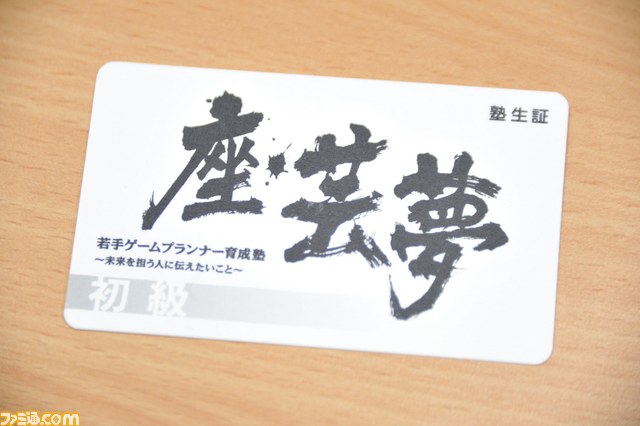 塾生証
座・芸夢
若手ゲームプランナー育成塾
～未来を担う人に伝えたいこと～
初級
ファミ通.com